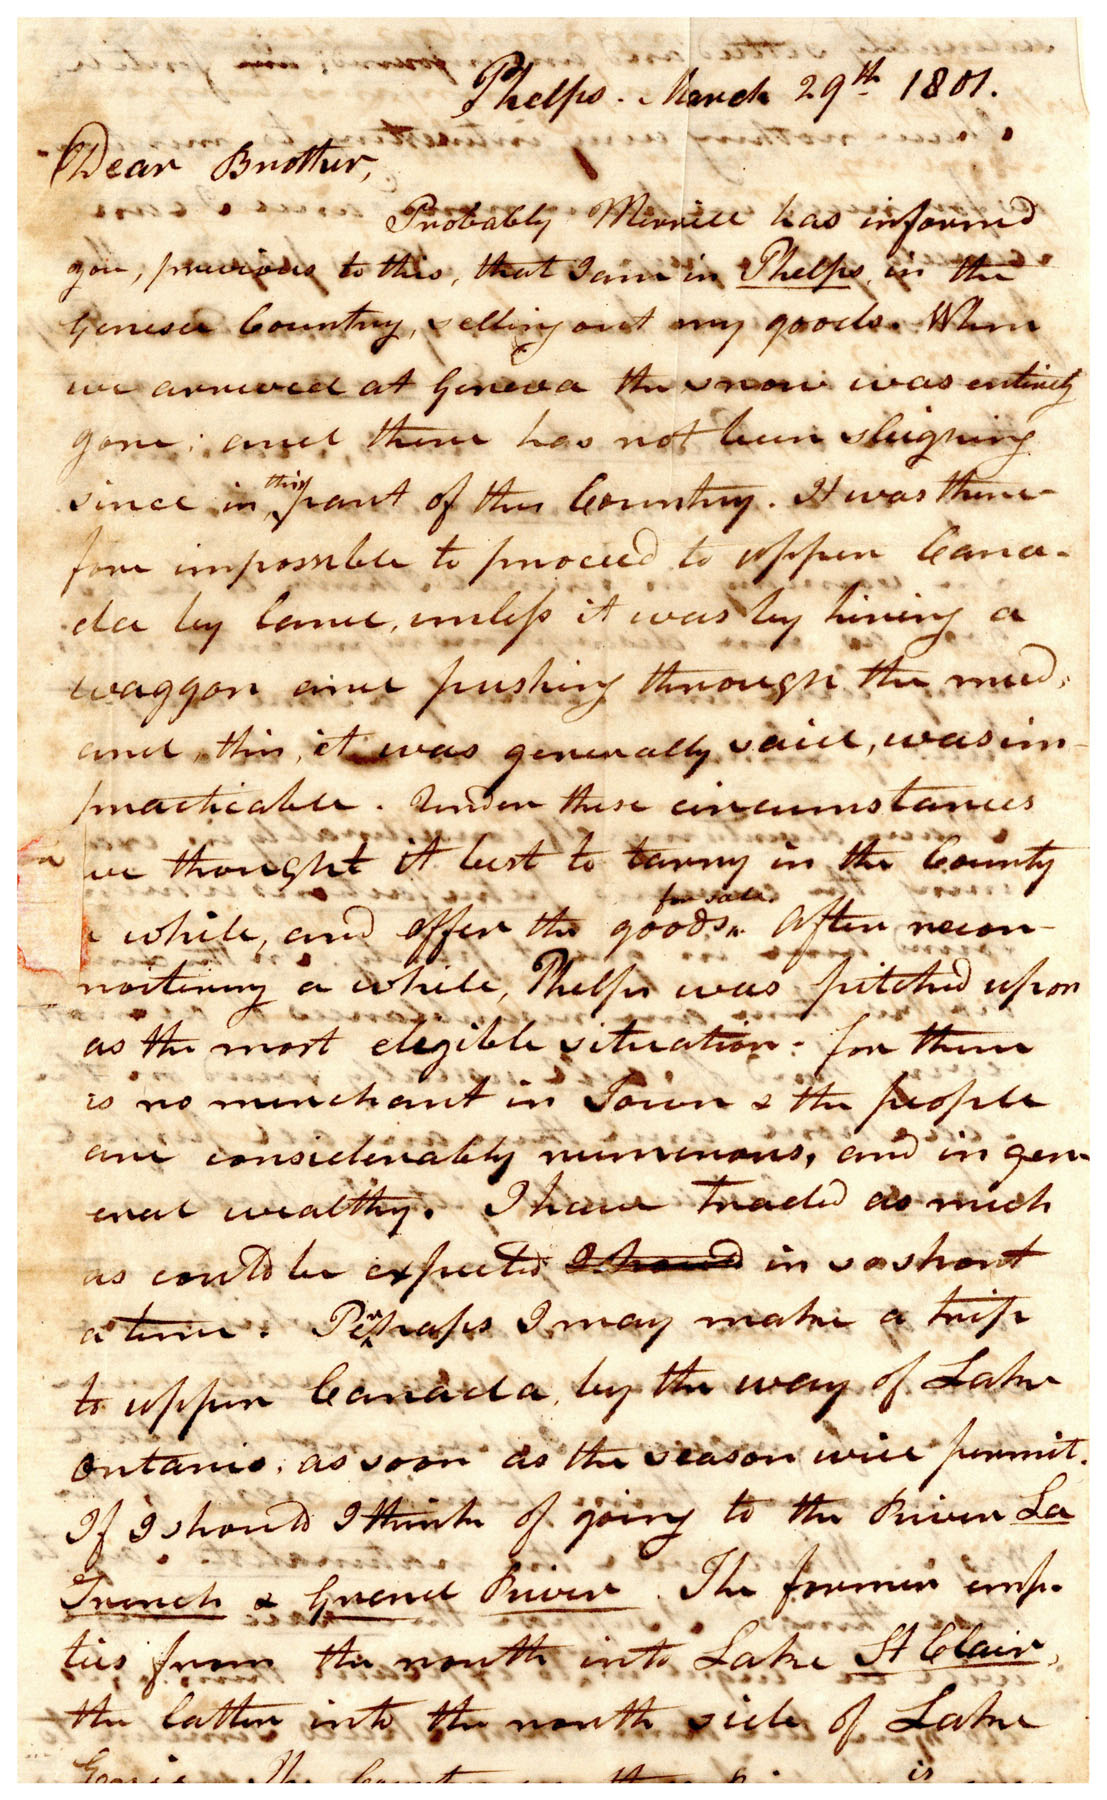 Phelps. March 29th 1801.
Dear Brother,
Probably Merrill has informed
you, previous to this, that I am in Phelps, in the
Genesee Country, selling out my goods. When
we arrived at Geneva the snow was entirely
gone; and there has not been sleighing
since in this part of the Country. It was there-
fore impossible to proceed to upper Cana-
da by land, unless it was by hiring a
waggon and pushing through the mud,
and, this, it was generally said, was im-
practicable. Under these circumstances
we thought it best to tarry in the County
a while, and offer the goods for sale. After recon-
noitering a while, Phelps was pitched upon
as the most elegible situation - for there
is no merchant in Town & the people
are considerably numerous, and in gen-
eral wealthy. I have traded as much
as could be expected I should in so short
a time. Perhaps I may make a trip
to upper Canada, by the way of Lake
Ontario, as soon as the season will permit.
If I should I think of going to the River La
Trench & Grand River. The former emp-
ties from the north into Lake St Clair,
the latter into the north side of Lake